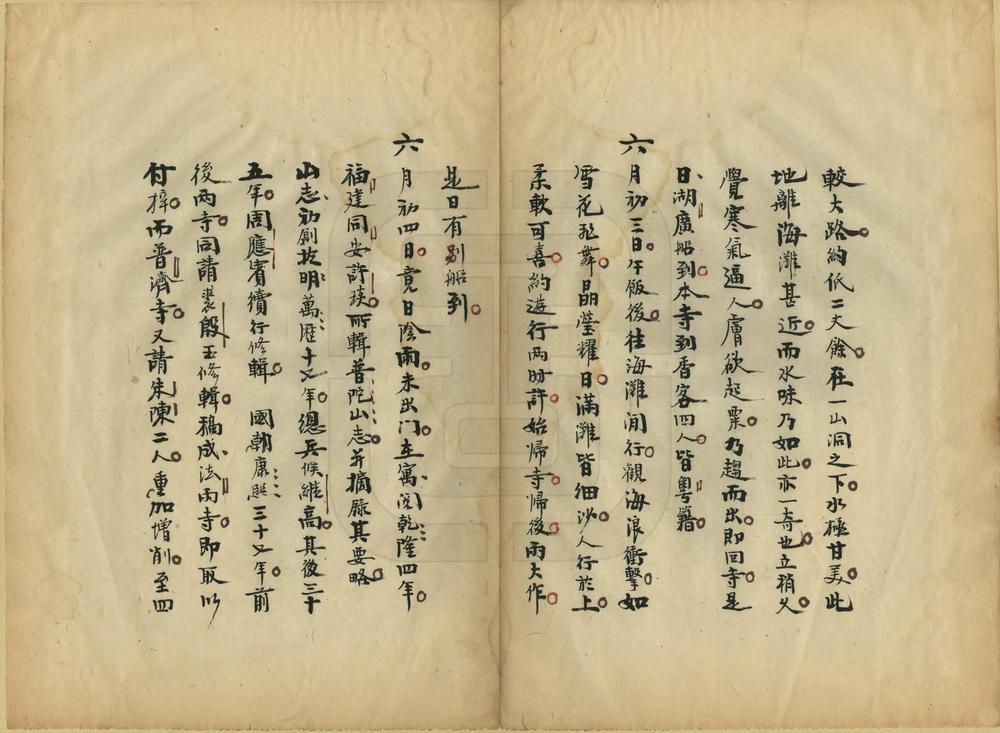 較大路約低二丈餘在一山洞之下水極甘美此
地離海灘甚近而水味乃如此亦一奇也立稍久
覺寒氣逼人膚欲起粟乃趨而出即回寺是
日湖廣船到本寺到香客四人皆粵籍
六月初三日午飯後往海灘閒行觀海浪衝擊如
雪花飛舞晶瑩耀日滿灘皆細沙人行於上
柔軟可喜約遊行兩時許始歸寺歸後雨大作
是日有別船到
六月初四日竟日陰雨未出门在寓阅乾隆四年
福建同安許琰所輯普陀山志并摘錄其要略
山志初創於明萬曆十七年總兵侯繼高其後三十
五年周應賓續行修輯 國朝康熙三十七年前
後兩寺同請裘殷玉修輯稿成法雨寺即取以
付梓而普濟寺又請朱陳二人重加增削至四